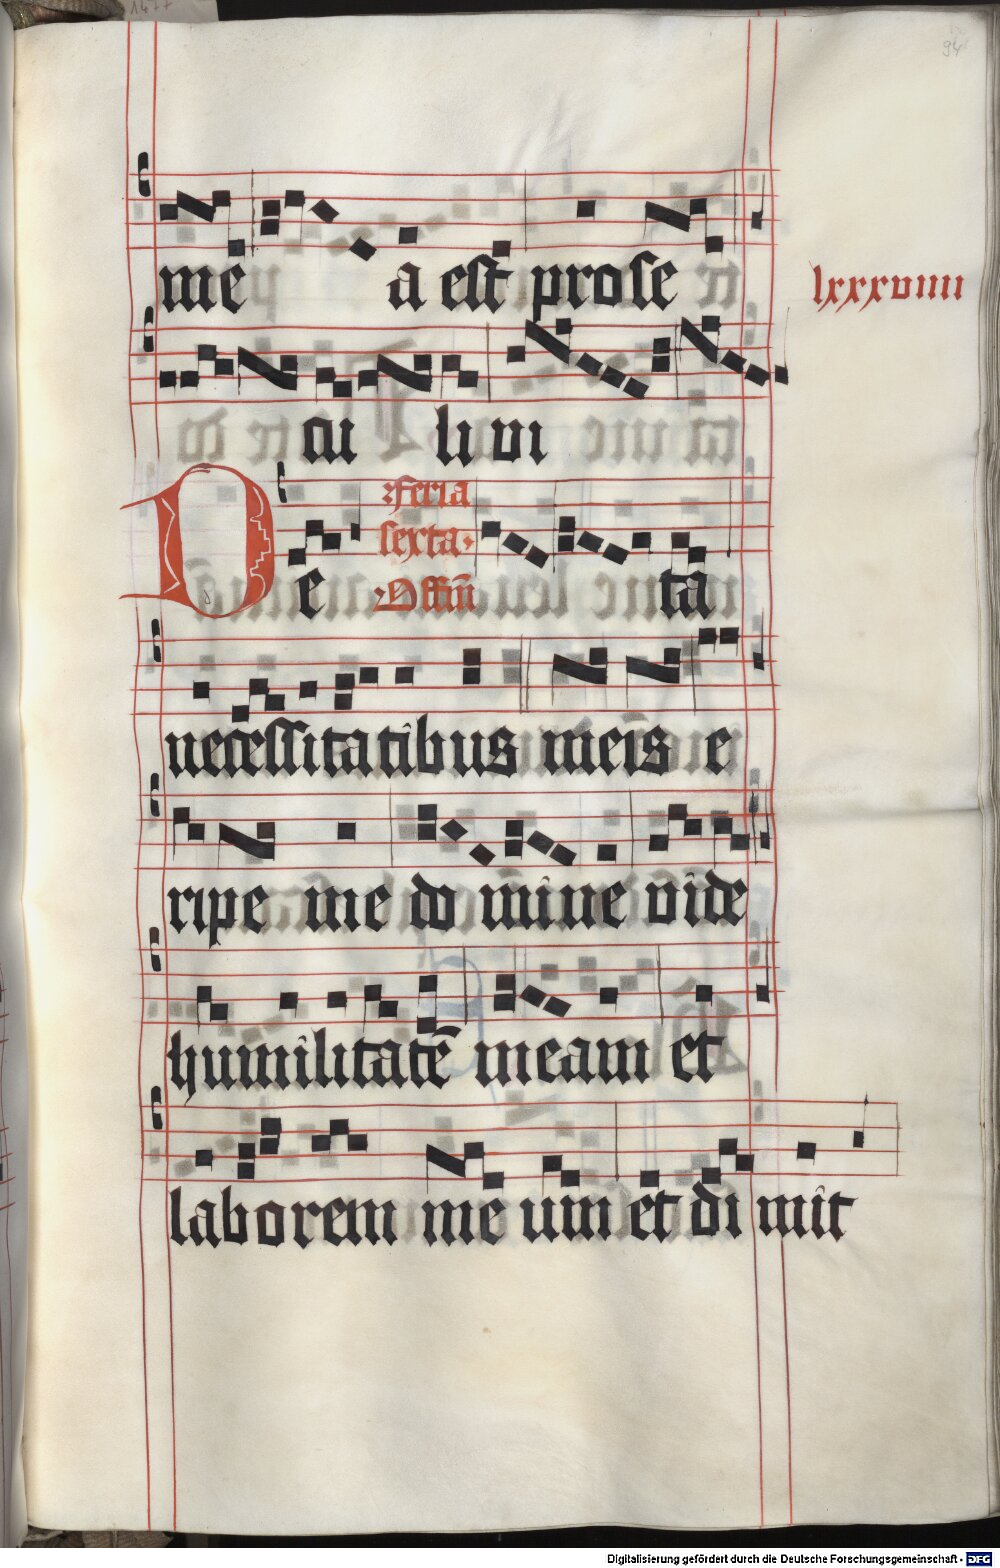 94
me a est pro se
lxxxviiii
cu li vi
feria
sexta·
De Offm̄ ta
necessitatibus meis e
ripe me do mine vide
humilitatē meam et
laborem me um et di mit
Digitalisierung gefördert durch die Deutsche Forschungsgemeinschaft - DFG